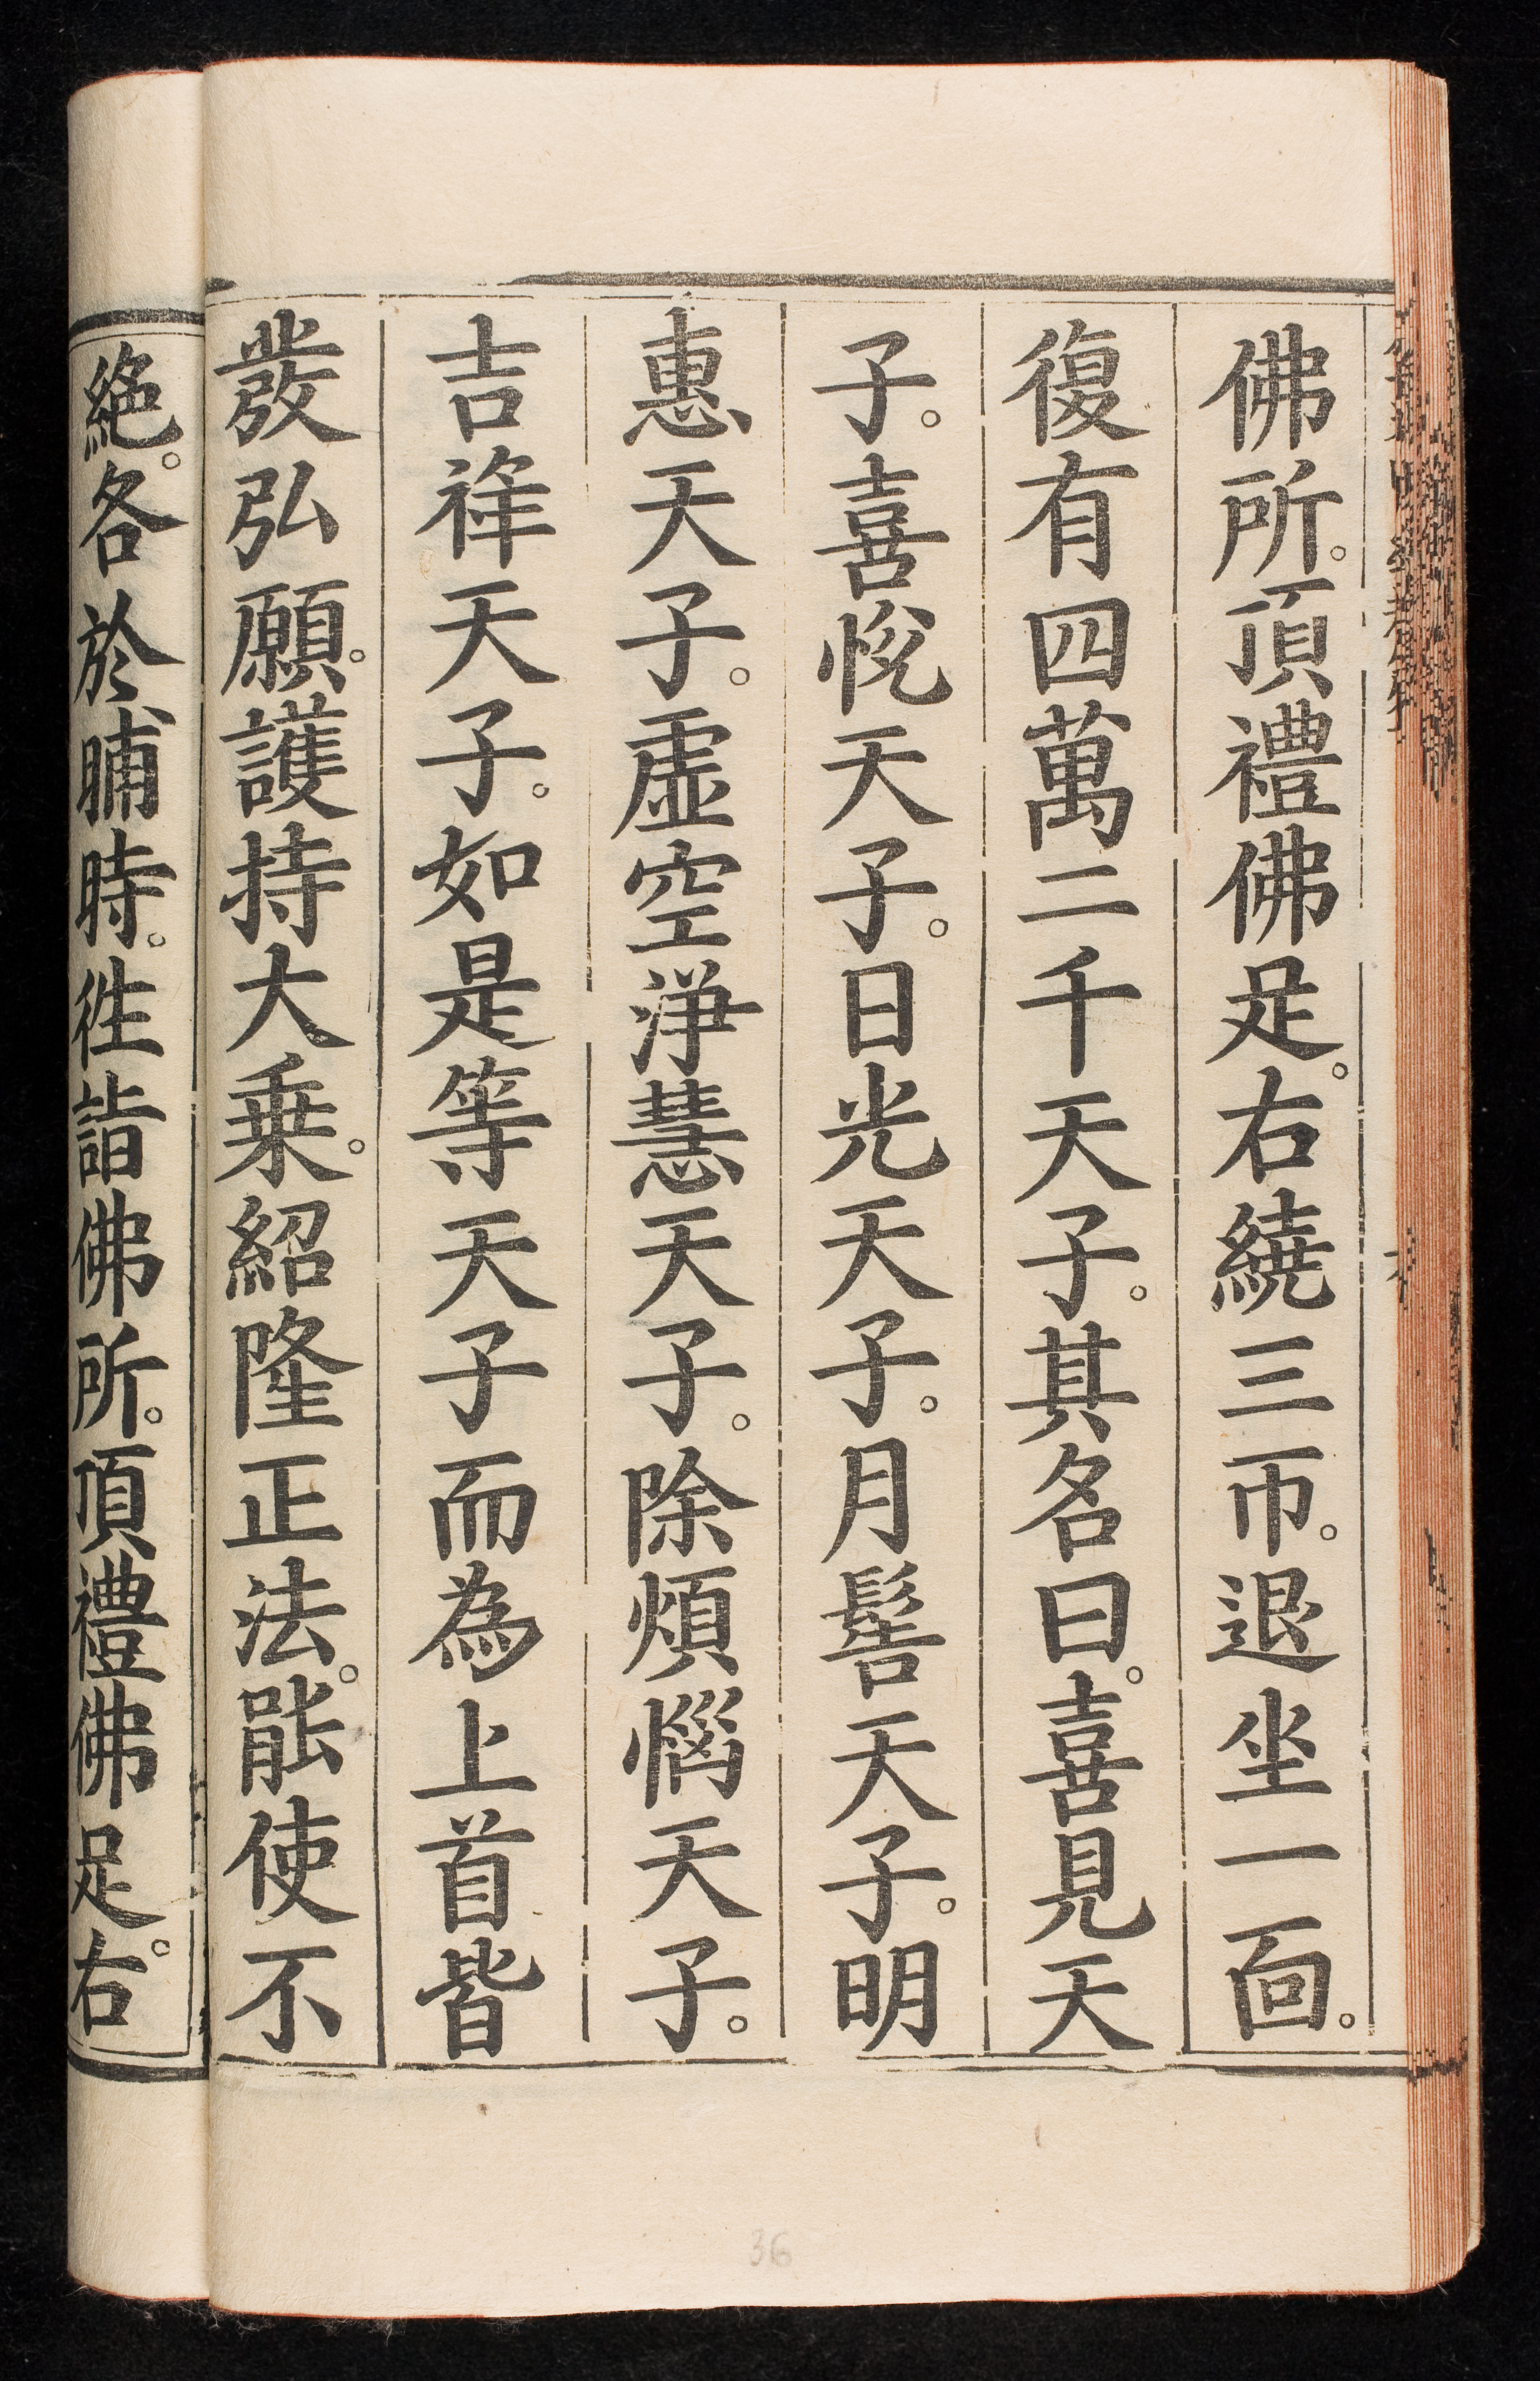 佛所。頂禮佛足。右繞三帀。退坐一面。
復有四萬二千天子。其名曰。喜見天
子。喜悅天子。日光天子。月髻天子。明
惠天子。虛空淨慧天子。除煩惱天子。
吉祥天子。如是等天子而為上首皆
發弘願。護持大乗。紹隆正法。能使不
絕。各於晡時。徃詣佛所。頂禮佛足。右
36